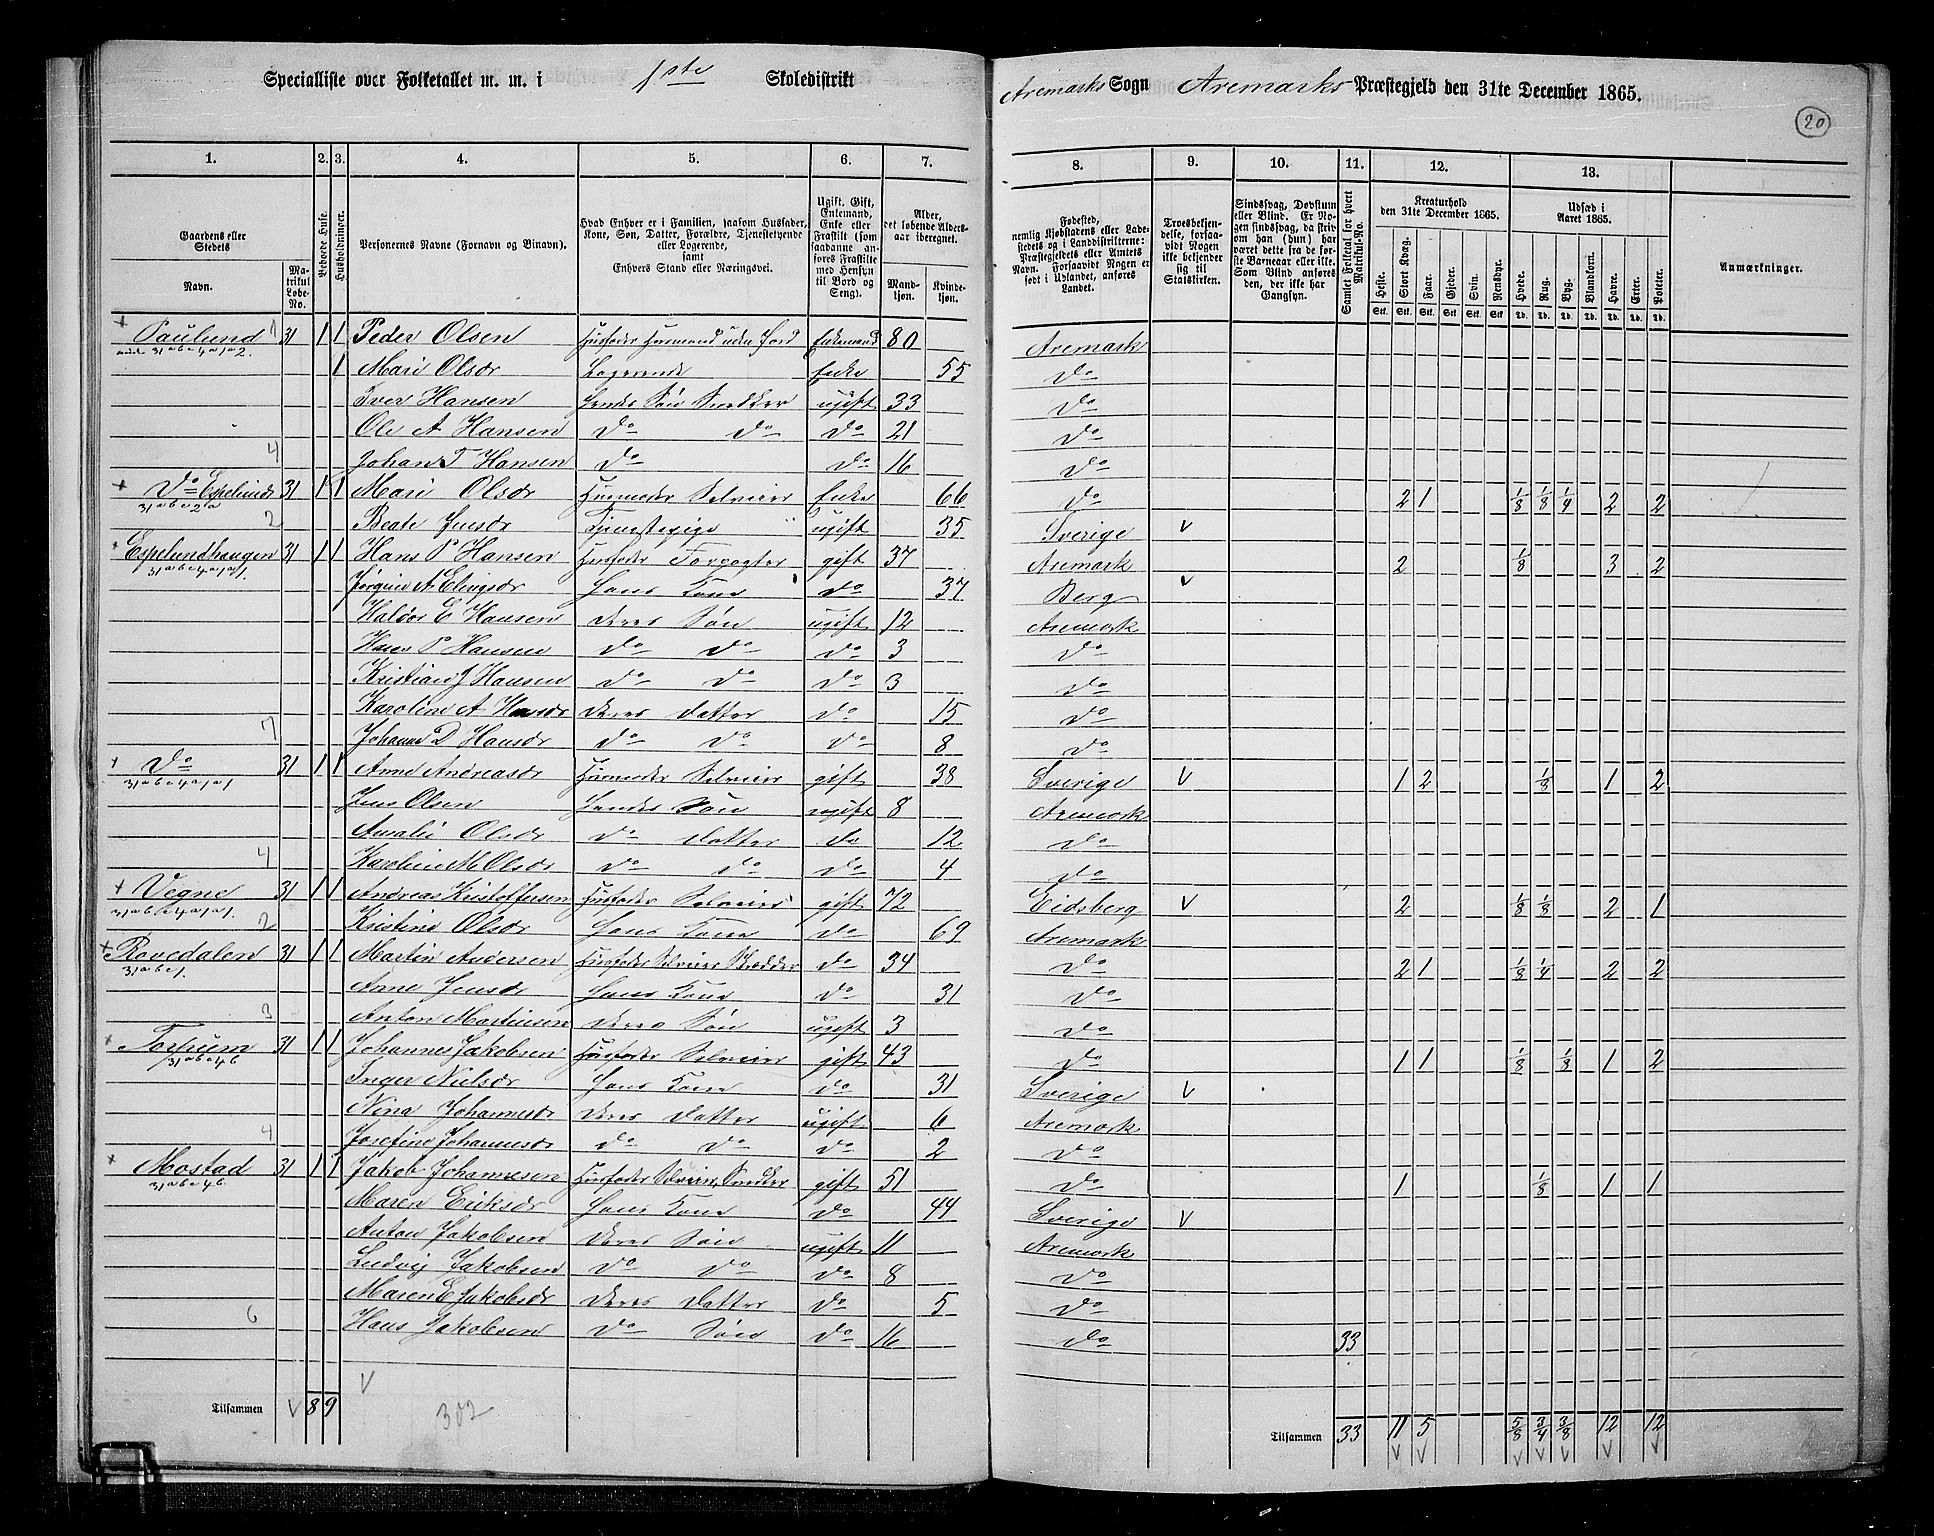 Specialliste over Folketallet m. m. i 1ste Skoledistrikt Aremarks Sogn Aremarks Præstegjeld den 31te December 1865.
20
1. 2. 3. 4. 5. 6. 7. 8. 9. 10. 11. 12. 13.
Gaardens eller Stedets
Navn.
Matrikul Løbe-No.
Beboede Huse.
Husholdninger.
Personernes Navne (Fornavn og Binavn).
Hvad Enhver er i Familien, saasom Husfader, Kone, Søn, Datter, Forældre, Tjenestetyende eller Logerende, samt Enhvers Stand eller Næringsvei.
Ugift, Gift, Enkemand, Enke eller Fraskilt (som saadanne anføres Fraskilte med Hensyn til Bord og Seng).
Alder, det løbende Aldersaar iberegnet.
Mandkjøn. Kvindekjøn.
Fødested, nemlig Kjøbstadens eller Ladestedets og i Landdistrikterne: Præstegjeldets eller Amtets Navn. Forsaavidt Nogen er født i Udlandet, anføres Landet.
Troesbekjendelse, forsaavidt Nogen ikke bekjender sig til Statskirken.
Sindssvag, Døvstum eller Blind. Er Nogen sindssvag, da skriv om han (hun) har været dette fra de første Barneaar eller ikke. Som Blind anføres den, der ikke har Gangsyn.
Samlet Folketal for hvert Matrikul-No.
Kreaturhold den 31te December 1865.
Heste. Stort Kvæg. Faar. Gjeder. Svin. Rensdyr.
Udsæd i Aaret 1865.
Hvede. Rug. Byg. Blandkorn. Havre. Erter. Poteter.
Anmærkninger.
Paulund 31 1 1 Peder Olsen Husfader Husmand uden Jord Enkemand 80 Aremark
1 Mari Olsdr Logerende Enke 55 Do
Iver Hansen Hendes Søn Snedker ugift 33 Do
Ole A Hansen Do Do Do 21 Do
4 Johan T Hansen Do Do 16 Do
Do Espelund 31 1 1 Mari Olsdr Husmoder Selveier Enke 66 Do 2 1 1/8 1/8 1/4 2 2
2 Beate Jensdr Tjenestepige ugift 35 Sverige V
Espelundhaugen 31 1 1 Hans P Hansen Husfader Forpagter gift 37 Aremark 2 1/8 3 2
Jørgine A Elingsdr Hans Kone Do 37 Berg V
Haldor E Hansen Deres Søn ugift 12 Aremark
Hans P Hansen Do Do Do 3 Do
Kristian J Hansen Do Do Do 3 Do
Karoline A Hansdr Deres Datter Do 15 Do
7 Johanne D Hansdr Do Do Do 8 Do
Do 31 1 1 Anne Andreasdr Husmoder Selveier gift 38 Sverige V 1 2 1/8 1 2
Jens Olsen Hendes Søn ugift 8 Aremark
Amalie Olsdr Do Datter Do 12 Do
4 Karoline M Olsdr Do Do Do 4 Do
Vegne 31 1 1 Andreas Kristoffersen Husfader Selveier gift 72 Eidsberg V 2 1/8 1/8 2 1
2 Kristine Olsdr Hans Kone Do 69 Aremark
Rovedalen 31 1 1 Martin Andersen Husfader Selveier Do 34 Do 2 1 1/8 1/4 2 2
Anne Jensdr Hans Kone Do 31 Do
3 Anton Martinsen Deres Søn ugift 3 Do
31 1 1 Johannes Jakobsen Husfader Selveier gift 43 Do 1 1 1/8 1/8 1 2
Inger Nielsdr Hans Kone Do 31 Sverige V
Nina Johannesdr Deres Datter ugift 6 Aremark
4 Josefine Johannesdr Do Do Do 2 Do
Mostad 31 1 1 Jakob Johannesen Husfader Selveier, Snedker gift 51 Do 1 1/8 1 1
Maren Eriksdr Hans Kone Do 44 Sverige V
Anton Jakobsen Deres Søn ugift 11 Aremark
Ludvig Jakobsen Do Do Do 8 Do
Maren E Jakobsdr Deres Datter Do 5 Do
6 Hans Jakobsen Do Søn Do 16 Do 33
Tilsammen V 8 9 302
Tilsammen 33 11 5 5/8 3/4 3/8 12 12